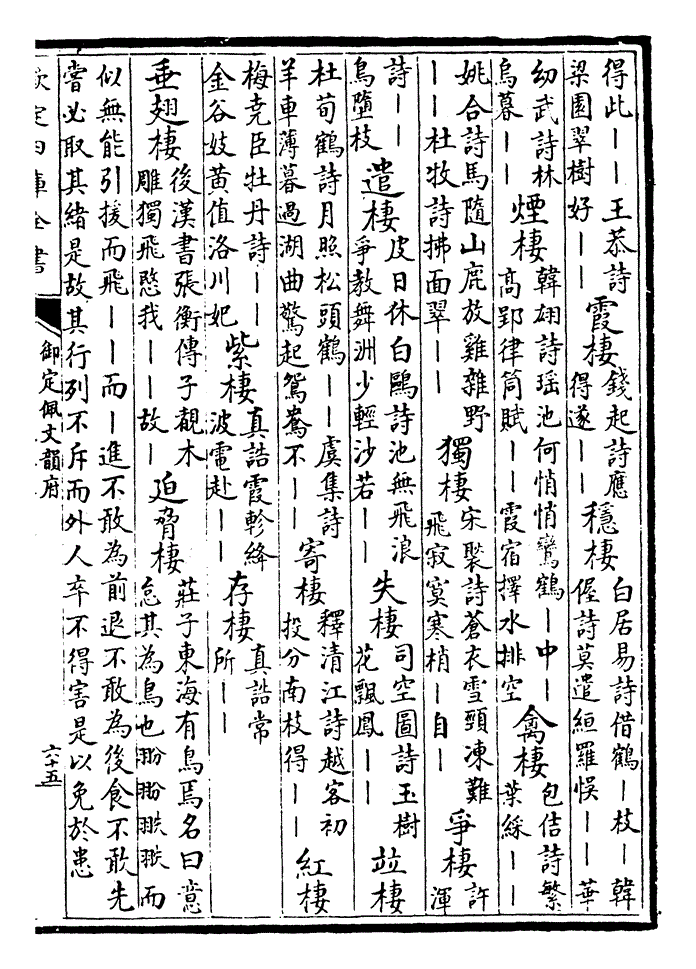 得此——王恭詩
梁園翠樹好——
霞棲
錢起詩應
得遂——
穩棲
白居易詩借鶴—枝—韓
偓詩莫遣絙羅悞——華
幼武詩林
烏暮——
煙棲
韓翃詩瑶池何悄悄鸞鶴—中—
高郢律筒賦——霞宿擇水排空
禽棲
包佶詩繁
葉綵——
姚合詩馬隨山鹿放雞雜野
——杜牧詩拂面翠——
獨棲
宋褧詩蒼衣雪頸凍難
飛寂寞寒梢—自—
爭棲
許
渾
詩——
鳥墮枝
遣棲
皮日休白鷗詩池無飛浪
爭教舞洲少輕沙若——
失棲
司空圖詩玉樹
花飄鳳——
竝棲
杜荀鶴詩月照松頭鶴——虞集詩
羊車薄暮過湖曲驚起鴛鴦不——
寄棲
釋清江詩越客初
投分南枝得——
紅棲
梅堯臣牡丹詩——
金谷妓黃值洛川妃
紫棲
真誥霞軫絳
波電赴——
存棲
真誥常
所——
垂翅棲
後漢書張衡傳子覩木
雕獨飛愍我——故—
迫脅棲
莊子東海有鳥焉名曰意
怠其為鳥也翂翂翐翐而
似無能引援而飛——而—進不敢為前退不敢為後食不敢先
嘗必取其緒是故其行列不斥而外人卒不得害是以免於患
欽定四庫全書
御定佩文韻府
六十五